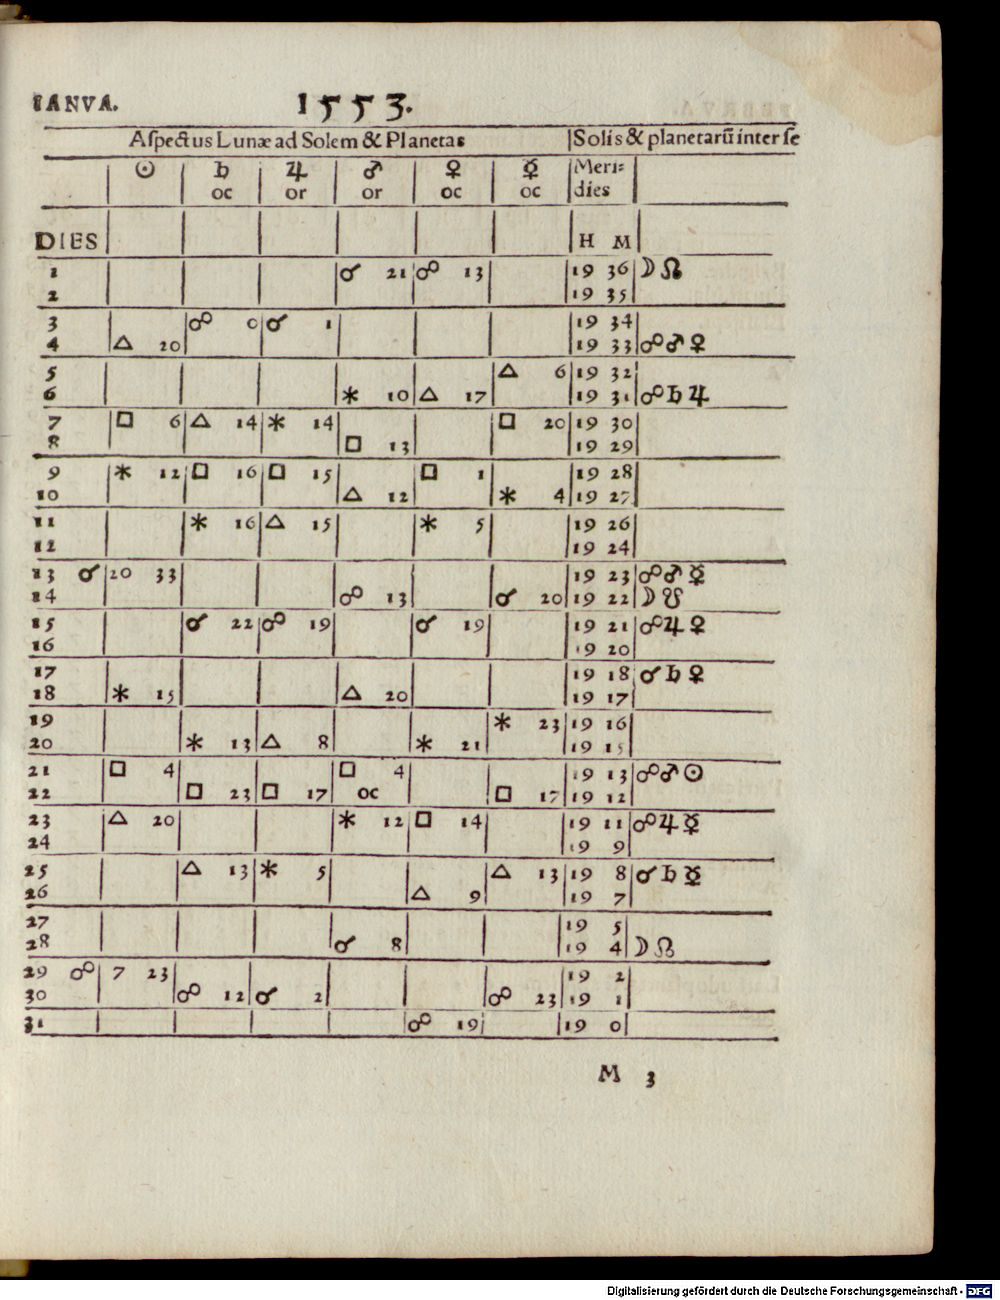 IANVA. 1553.
Aspectus Lunæ ad Solem & Planetas | Solis & planetarũ inter se
☉ ♄ ♃ ♂ ♀ ☿ Meri=
oc or or oc oc dies
DIES H M
1 ☌ 21 ☍ 13 19 36 ☽ ☊
2 19 35
3 ☍ 0 ☌ 1 19 34
4 △ 20 19 33 ☍ ♂ ♀
5 △ 6 19 32
6 ⚹ 10 △ 17 19 31 ☍ ♄ ♃
7 □ 6 △ 14 ⚹ 14 □ 20 19 30
8 □ 13 19 29
9 ⚹ 12 □ 16 □ 15 □ 1 19 28
10 △ 12 ⚹ 4 19 27
11 ⚹ 16 △ 15 ⚹ 5 19 26
12 19 24
13 ☌ 20 33 19 23 ☍ ♂ ☿
14 ☍ 13 ☌ 20 19 22 ☽ ☋
15 ☌ 22 ☍ 19 ☌ 19 19 21 ☍ ♃ ♀
16 19 20
17 19 18 ☌ ♄ ♀
18 ⚹ 15 △ 20 19 17
19 ⚹ 23 19 16
20 ⚹ 13 △ 8 ⚹ 21 19 15
21 □ 4 □ 4 19 13 ☍ ♂ ☉
22 □ 23 □ 17 oc □ 17 19 12
23 △ 20 ⚹ 12 □ 14 19 11 ☍ ♃ ☿
24 19 9
25 △ 13 ⚹ 5 △ 13 19 8 ☌ ♄ ☿
26 △ 9 19 7
27 19 5
28 ☌ 8 19 4 ☽ ☊
29 ☍ 7 23 19 2
30 ☍ 12 ☌ 2 ☍ 23 19 1
31 ☍ 19 19 0
M 3
Digitalisierung gefördert durch die Deutsche Forschungsgemeinschaft - DFG